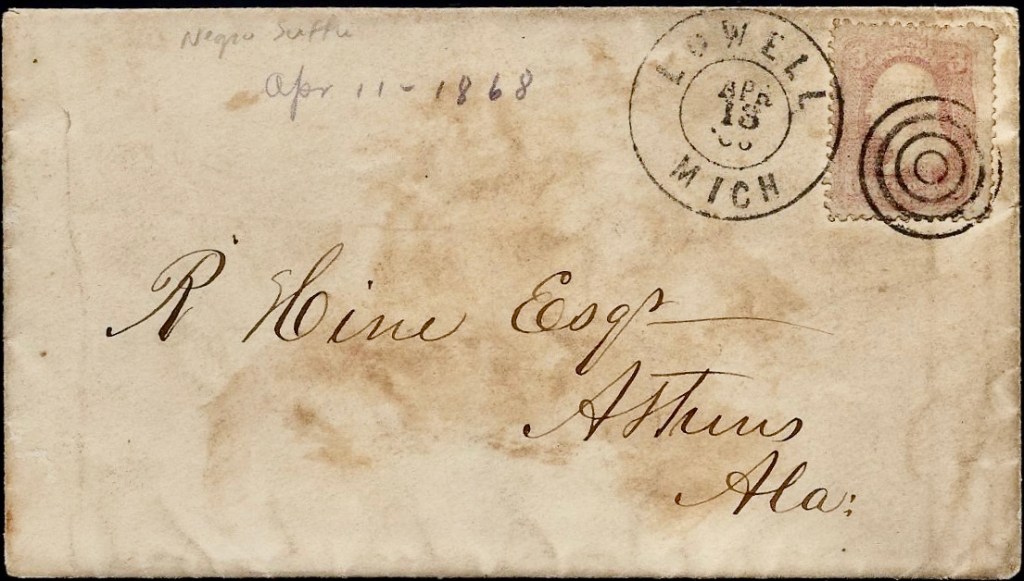 Negro Suffr
Apr 11 - 1868
LOWELL
APR
13
MICH
R Hine Esqr
Athens
Ala: